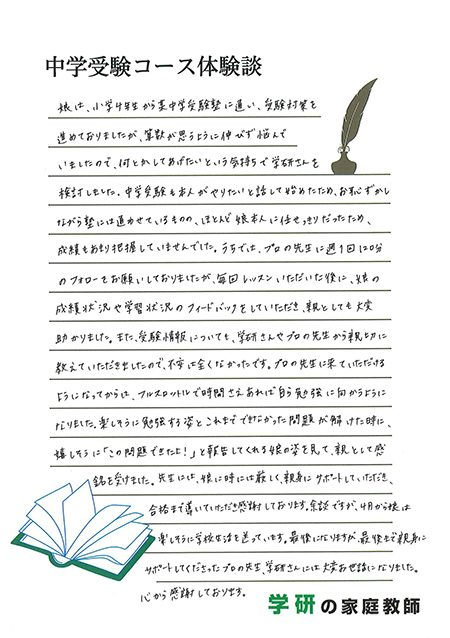 中学受験コース体験談
娘は、小学4年生から某中学受験塾に通い、受験対策を
進めておりましたが、算数が思うように伸びず悩んで
いましたので、何とかしてあげたいという気持ちで学研さんを
検討しました。中学受験も本人がやりたいと話して始めたため、お恥ずかし
ながら塾には通わせているものの、ほとんど娘本人に任せっきりだったため、
成績もあまり把握していませんでした。うちでは、プロの先生に週1回120分
のフォローをお願いしておりましたが、毎回レッスンいただいた後に、娘の
成績状況や学習状況のフィードバックをしていただき、親としても大変
助かりました。また、受験情報についても、学研さんやプロの先生から親切に
教えていただき出したので、不安は全くなかったです。プロの先生に来ていただける
ようになってからは、フルスロットルで時間さえあれば自ら勉強に向かうように
なりました。楽しそうに勉強する姿とこれまでできなかった問題が解けた時に、
嬉しそうに「この問題できたよ!」と報告してくれる娘の姿を見て、親として感
銘を受けました。先生には、娘に時には厳しく、親身にサポートしていただき、
合格まで導いていただき感謝しております。余談ですが、4月から娘は
楽しそうに学校生活を送っています。最後になりますが、最後まで親身に
サポートしてくださったプロの先生、学研さんには大変お世話になりました。
心から感謝しております。
学研の家庭教師